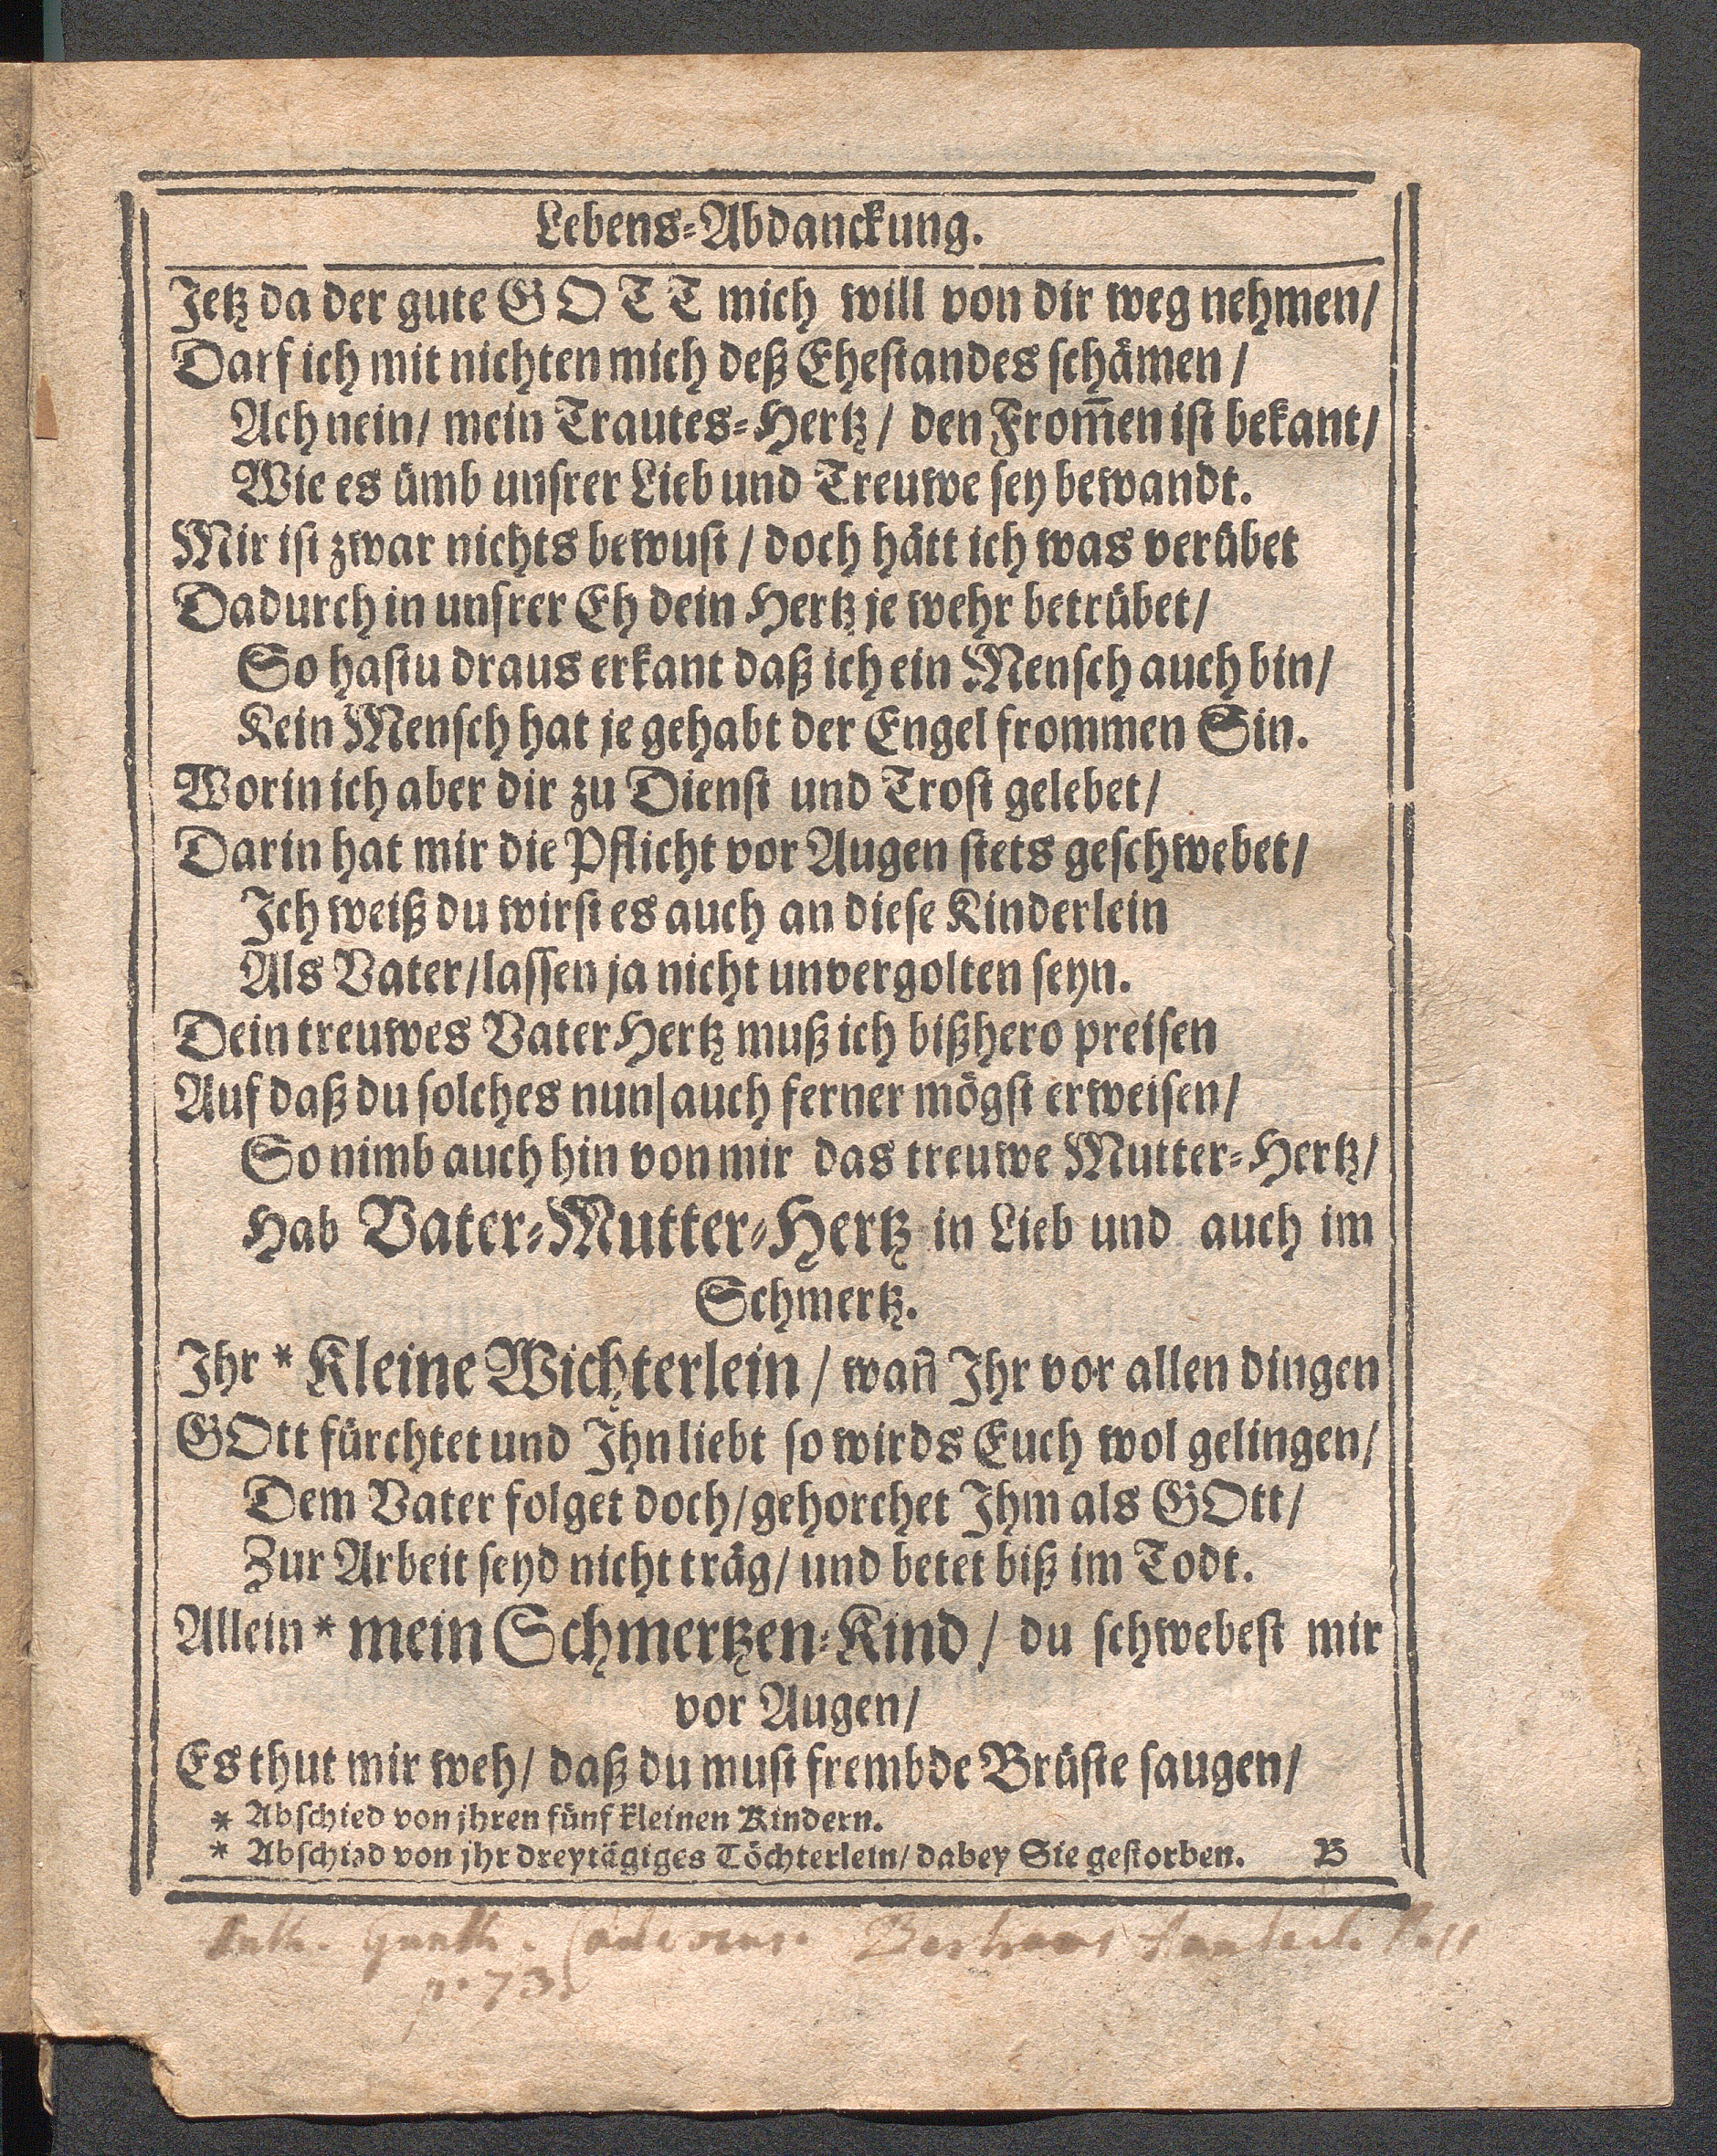 Lebens-Abdanckung.
Jetz da der gute GOTT mich will von dir weg nehmen/
Darf ich mit nichten mich deß Ehestandes schämen /
Ach nein/ mein Trautes-Hertz/ den From̄en ist bekant/
Wie es ümb unsrer Lieb und Treuwe sey bewandt.
Mir ist zwar nichts bewust / doch hätt ich was verübet
Dadurch in unsrer Eh dein Hertz je wehr betrübet/
So hastu draus erkant daß ich ein Mensch auch bin/
Kein Mensch hat je gehabt der Engel frommen Sin.
Worin ich aber dir zu Dienst und Trost gelebet/
Darin hat mir die Pflicht vor Augen stets geschwebet/
Ich weiß du wirst es auch an diese Kinderlein
Als Vater/lassen ja nicht unvergolten seyn.
Dein treuwes VaterHertz muß ich bißhero preisen
Auf daß du solches nun|auch ferner mögst erweisen/
So nimb auch hin von mir das treuwe Mutter-Hertz/
Hab Vater-Mutter-Hertz in Lieb und auch im
Schmertz.
Ihr * Kleine Wichterlein / wañ Ihr vor allen dingen
GOtt fürchtet und Ihn liebt so wirds Euch wol gelingen/
Dem Vater folget doch/gehorchet Ihm als GOtt/
Zur Arbeit seyd nicht träg/ und betet biß im Todt.
Allein * mein Schmertzen-Kind / du schwebest mir
vor Augen/
Es thut mir weh/ daß du must frembde Brüste saugen/
* Abschied von jhren fünf kleinen Kindern.
* Abschied von jhr dreytägiges Töchterlein/ dabey Sie gestorben. B
p. 73.